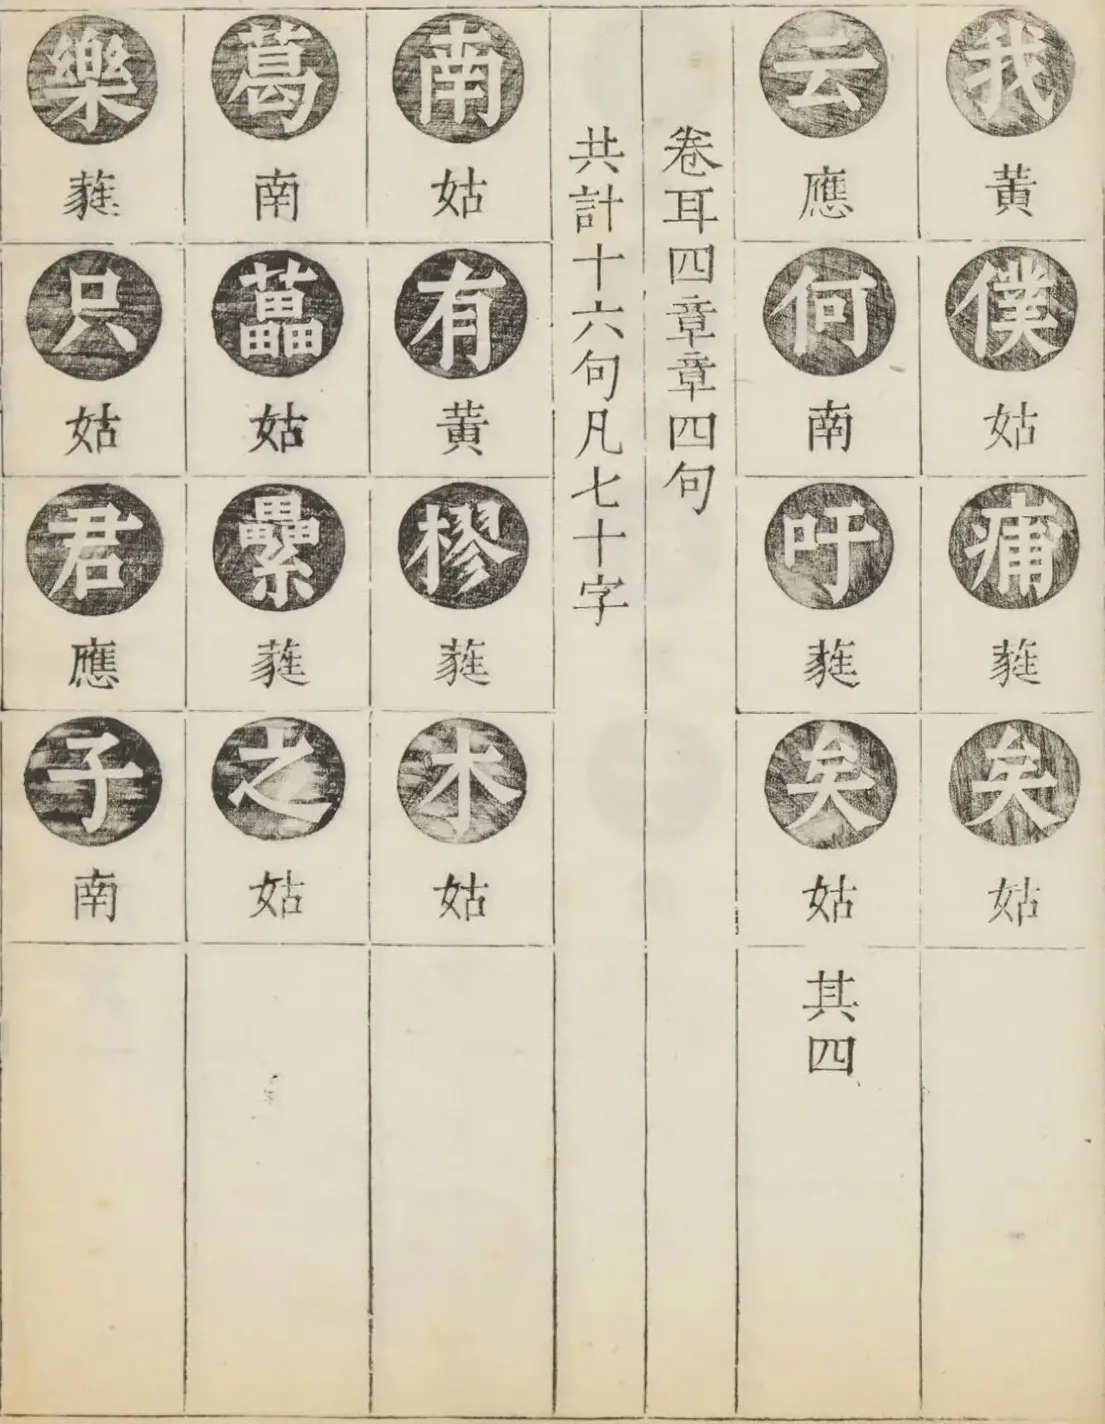 我黄僕姑痡蕤矣姑
云應何南吁蕤矣姑其四
卷耳四章章四句
共計十六句凡七十字
南姑有黄樛蕤木姑
葛南藟姑纍蕤之姑
樂蕤只姑君應子南